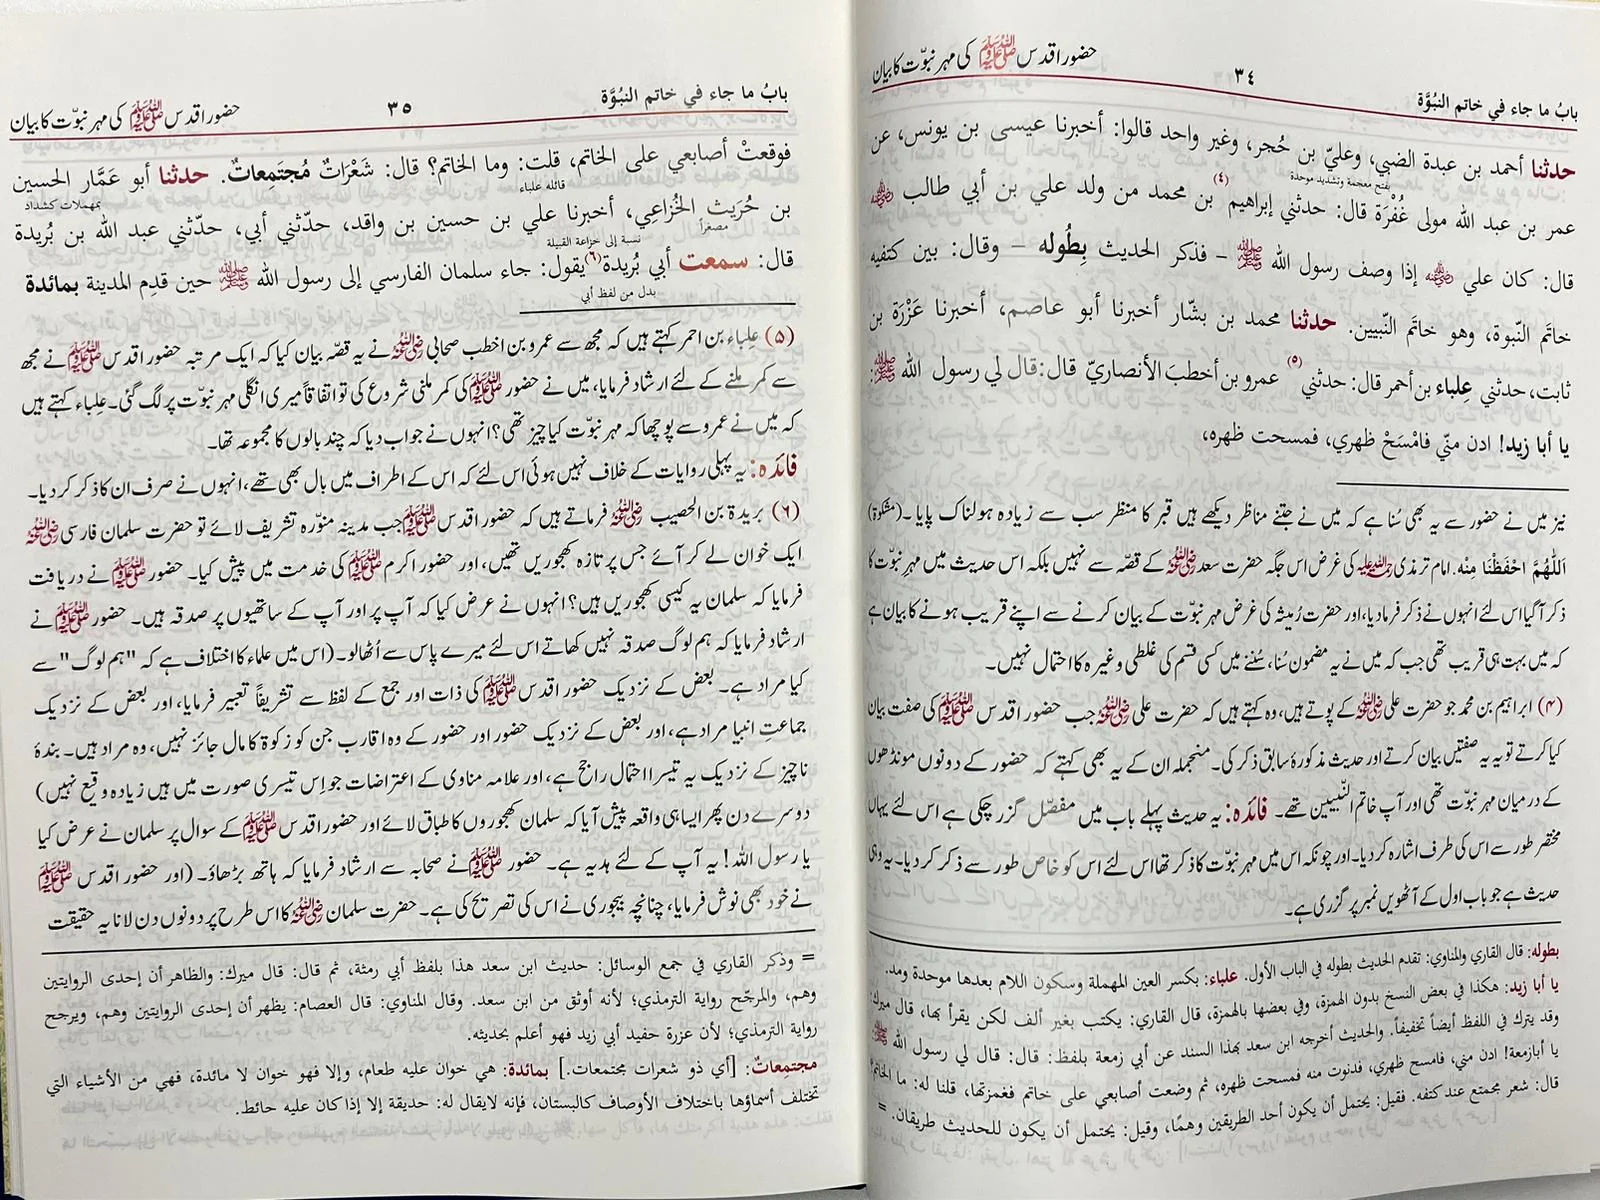 بابُ ما جاء في خاتم النبُوَّة ٣٤ حضور اقدس ﷺ کی مہر نبوّت کا بیان
حدثنا أحمد بن عبدة الضبي، وعليّ بن حُجر، وغير واحد قالوا: أخبرنا عيسى بن يونس، عن
بفتح معجمة وتشديد موحدة
عمر بن عبد الله مولى غُفْرَة قال: حدثني إبراهيم (٤) بن محمد من ولد علي بن أبي طالب ﷺ
قال: كان علي ﷺ إذا وصف رسول الله ﷺ – فذكر الحديث بِطُوله – وقال: بين كتفيه
خاتَم النّبوة، وهو خاتَم النّبيين. حدثنا محمد بن بشّار أخبرنا أبو عاصم، أخبرنا عَزْرَة بن
ثابت، حدثني عِلباء بن أحمر قال: حدثني (٥) عمرو بن أخطبَ الأنصاريّ قال: قال لي رسول الله ﷺ:
يا أبا زيد! ادن منّي فامْسَحْ ظهري، فمسحت ظهره،
نیز میں نے حضور سے یہ بھی سُنا ہے کہ میں نے جتنے مناظر دیکھے ہیں قبر کا منظر سب سے زیادہ ہولناک پایا۔ (مشکوٰۃ)
اَللّٰهُمَّ احْفَظْنَا مِنْه. امام ترمذی رحمۃ اللہ علیہ کی غرض اس جگہ حضرت سعد رضی اللہ عنہ کے قصّہ سے نہیں بلکہ اس حدیث میں مہرِ نبوّت کا
ذکر آگیا اس لئے انہوں نے ذکر فرمادیا، اور حضرت رُمیثہ کی غرض مہر نبوّت کے بیان کرنے سے اپنے قریب ہونے کا بیان ہے
کہ میں بہت ہی قریب تھی جب کہ میں نے یہ مضمون سُنا، سُننے میں کسی قسم کی غلطی وغیرہ کا احتمال نہیں۔
(۴) ابراہیم بن محمد جو حضرت علی رضی اللہ عنہ کے پوتے ہیں، وہ کہتے ہیں کہ حضرت علی رضی اللہ عنہ جب حضور اقدس ﷺ کی صفت بیان
کیا کرتے تو یہ یہ صفتیں بیان کرتے اور حدیث مذکورۂ سابق ذکر کی۔ منجملہ ان کے یہ بھی کہتے کہ حضور کے دونوں مونڈھوں
کے درمیان مہر نبوّت تھی اور آپ خاتم النّبیین تھے۔ فائدہ: یہ حدیث پہلے باب میں مفصّل گزر چکی ہے اس لئے یہاں
مختصر طور سے اس کی طرف اشارہ کردیا۔ اور چونکہ اس میں مہر نبوّت کا ذکر تھا اس لئے اس کو خاص طور سے ذکر کردیا۔ یہ وہی
حدیث ہے جو باب اول کے آٹھویں نمبر پر گزری ہے۔
بطوله: قال القاري والمناوي: تقدم الحديث بطوله في الباب الأول. علباء: بكسر العين المهملة وسكون اللام بعدها موحدة ومد.
يا أبا زيد: هكذا في بعض النسخ بدون الهمزة، وفي بعضها بالهمزة، قال القاري: يكتب بغير ألف لكن يقرأ بها، قال ميرك:
وقد يترك في اللفظ أيضاً تخفيفاً. والحديث أخرجه ابن سعد بهذا السند عن أبي زمعة بلفظ: قال: قال لي رسول الله ﷺ:
يا أبازمعة! ادن مني، فامسح ظهري، فدنوت منه فمسحت ظهره، ثم وضعت أصابعي على خاتم فغمزتها، قلنا له: ما الخاتم؟
قال: شعر مجتمع عند كتفه. فقيل: يحتمل أن يكون أحد الطريقين وهمًا، وقيل: يحتمل أن يكون للحديث طريقان. =
بابُ ما جاء في خاتم النبُوَّة ٣٥ حضور اقدس ﷺ کی مہر نبوّت کا بیان
فوقعتْ أصابعي على الخاتم، قلت: وما الخاتم؟ قال: شَعْرَاتٌ مُجتَمِعاتٌ. حدثنا أبو عَمَّار الحسين
قائله علباء بمهملات كشداد
بن حُرَيث الخُزاعِي، أخبرنا علي بن حسين بن واقد، حدّثني أبي، حدّثني عبد الله بن بُريدة
مصغراً نسبة إلى خزاعة القبيلة
قال: سمعت أبي بُريدة (٦) يقول: جاء سلمان الفارسي إلى رسول الله ﷺ حين قدِم المدينة بمائدة
بدل من لفظ أبي
(۵) عِلباء بن احمر کہتے ہیں کہ مجھ سے عمرو بن اخطب صحابی رضی اللہ عنہ نے یہ قصّہ بیان کیا کہ ایک مرتبہ حضور اقدس ﷺ نے مجھ
سے کمر ملنے کے لئے ارشاد فرمایا، میں نے حضور ﷺ کی کمر ملنی شروع کی تو اتفاقاً میری انگلی مہر نبوّت پر لگ گئی۔ عِلباء کہتے ہیں
کہ میں نے عمرو سے پوچھا کہ مہر نبوّت کیا چیز تھی؟ انہوں نے جواب دیا کہ چند بالوں کا مجموعہ تھا۔
فائدہ: یہ پہلی روایات کے خلاف نہیں ہوئی اس لئے کہ اس کے اطراف میں بال بھی تھے، انہوں نے صرف ان کا ذکر کردیا۔
(۶) بریدۃ بن الحصیب رضی اللہ عنہ فرماتے ہیں کہ حضور اقدس ﷺ جب مدینہ منوّرہ تشریف لائے تو حضرت سلمان فارسی رضی اللہ عنہ
ایک خوان لے کر آئے جس پر تازہ کھجوریں تھیں، اور حضور اکرم ﷺ کی خدمت میں پیش کیا۔ حضور ﷺ نے دریافت
فرمایا کہ سلمان یہ کیسی کھجوریں ہیں؟ انہوں نے عرض کیا کہ آپ پر اور آپ کے ساتھیوں پر صدقہ ہیں۔ حضور ﷺ نے
ارشاد فرمایا کہ ہم لوگ صدقہ نہیں کھاتے اس لئے میرے پاس سے اُٹھالو۔ (اس میں علماء کا اختلاف ہے کہ "ہم لوگ" سے
کیا مراد ہے۔ بعض کے نزدیک حضور اقدس ﷺ کی ذات اور جمع کے لفظ سے تشریفاً تعبیر فرمایا، اور بعض کے نزدیک
جماعتِ انبیا مراد ہے، اور بعض کے نزدیک حضور اور حضور کے وہ اقارب جن کو زکوۃ کا مال جائز نہیں، وہ مراد ہیں۔ بندۂ
ناچیز کے نزدیک یہ تیسرا احتمال راجح ہے، اور علامہ مناوی کے اعتراضات جو اِس تیسری صورت میں ہیں زیادہ وقیع نہیں)
دوسرے دن پھر ایسا ہی واقعہ پیش آیا کہ سلمان کھجوروں کا طباق لائے اور حضور اقدس ﷺ کے سوال پر سلمان نے عرض کیا
یا رسول اللہ! یہ آپ کے لئے ہدیہ ہے۔ حضور ﷺ نے صحابہ سے ارشاد فرمایا کہ ہاتھ بڑھاؤ۔ (اور حضور اقدس ﷺ
نے خود بھی نوش فرمایا، چنانچہ بیجوری نے اس کی تصریح کی ہے۔ حضرت سلمان رضی اللہ عنہ کا اس طرح پر دونوں دن لانا یہ حقیقت
= وذكر القاري في جمع الوسائل: حديث ابن سعد هذا بلفظ أبي رمثة، ثم قال: قال ميرك: والظاهر أن إحدى الروايتين
وهم، والمرجّح رواية الترمذي؛ لأنه أوثق من ابن سعد. وقال المناوي: قال العصام: يظهر أن إحدى الروايتين وهم، ويرجح
رواية الترمذي؛ لأن عزرة حفيد أبي زيد فهو أعلم بحديثه.
مجتمِعاتٌ: [أي ذو شعرات مجتمعات.] بمائدة: هي خوان عليه طعام، وإلا فهو خوان لا مائدة، فهي من الأشياء التي
تختلف أسماؤها باختلاف الأوصاف كالبستان، فإنه لايقال له: حديقة إلا إذا كان عليه حائط.